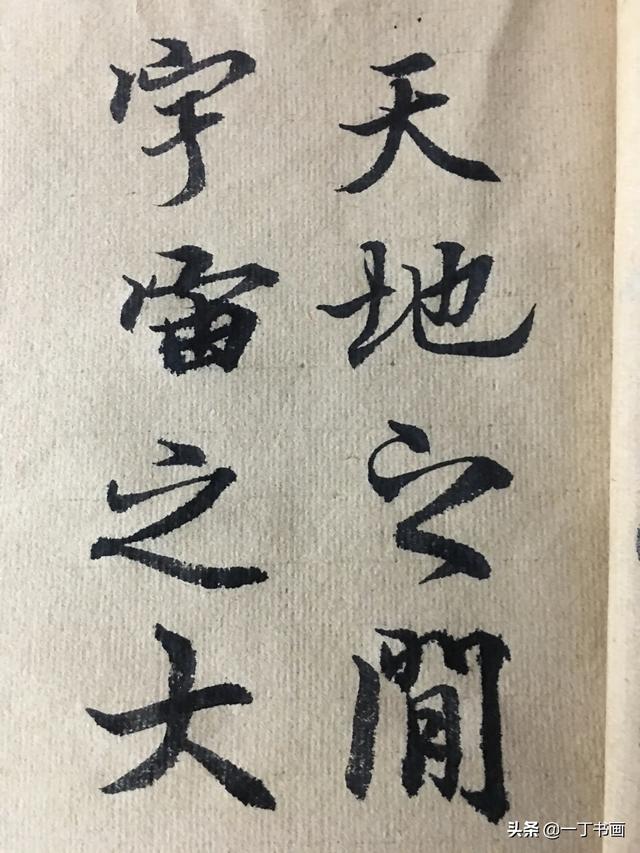 天地之閒
宇宙之大
头条 @一丁书画